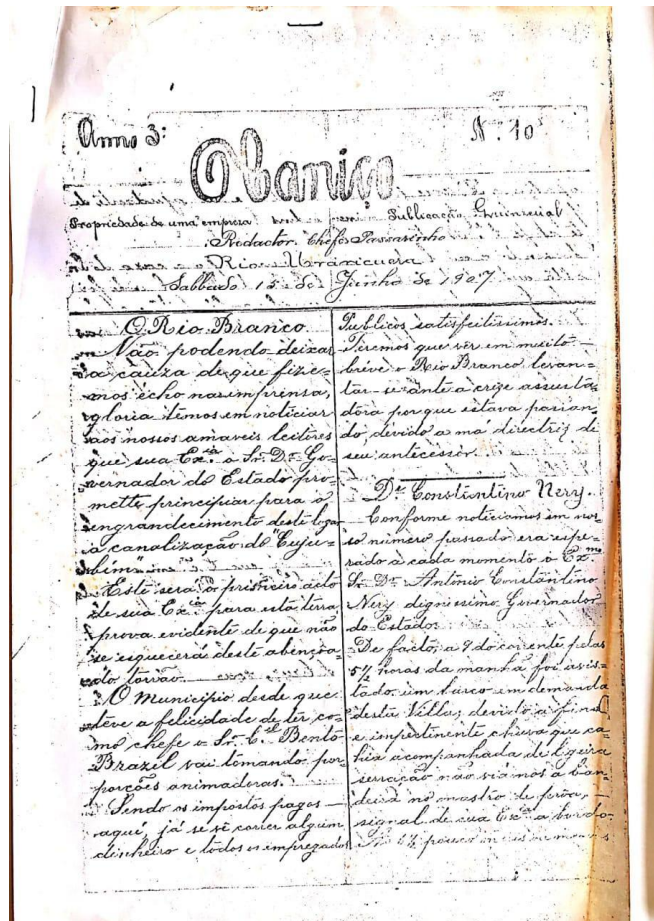 Anno 3º
N. 10
O Caniço
Propriedade de uma empreza
Publicação Quinzenal
Redactor Chefe Passarinho
Rio Uraricuera
Sabbado 15 de Junho de 1907
O Rio Branco
Não podendo deixar
a cauza de que fize=
mos echo na imprensa,
gloria têmos em noticiar
aos nossos amaveis leitores
que sua Ex.cia o Sr. Dr. Go=
vernador do Estado pro=
mette principiar para o
engrandecimento deste logar
a canalização do "Cuju=
bim"
Este será o primeiro acto
de sua Ex.cia para esta terra
prova evidente de que não
se esquecerá deste abençoa=
do torrão.
O Municipio desde que
teve a felicidade de ter co=
mo chefe o Sr. C.el Bento
Brazil vai tomando por=
porções animadoras.
Sendo os impostos pagos
aqui, já se vê correr algum
dinheiro e todos os empregados
Publicos satisfeitissimos.
Tiremos que ver em muito
breve o Rio Branco levan=
tar-se ante a crize assusta=
dôra por que estava passan=
do, devido a má directriz de
seu antecessor.
Dr. Constantino Nery.
Conforme noticiamos em nos=
so número passado era espe=
rado a cada momento o Ex.mo
Sr. Dr. Antonio Constantino
Nery dignissimo Governador
do Estado.
De facto, a 9 do corrente pelas
5½ horas da manhã foi avis=
tado um barco em demanda
desta Villa; devido a fina
e impertinente chuva que ca=
hia acompanhada de ligeira
serração não viamos a ban=
deira no mastro de prôa,
signal de sua Ex.cia a bordo.
pouco